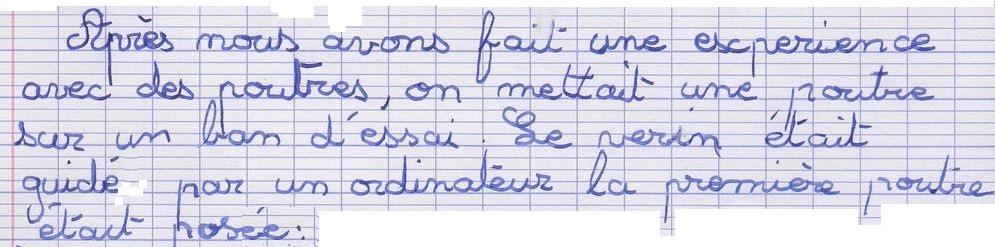 Après nous avons fait une experience
avec des poutres, on mettait une poutre
sur un ban d'éssai. Le verin était
guidé par un ordinateur la première poutre
était posée: